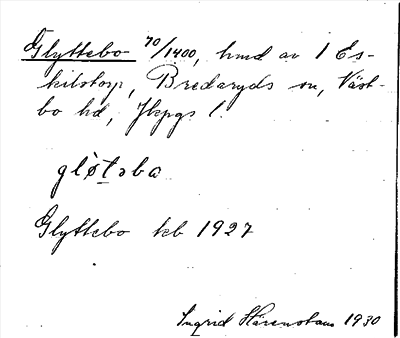 Glyttebo 70/1400, hmd av 1 Es-
kilstorp, Bredaryds sn, Väst-
bo hd, Jkpgs l.
glø̀təba
Glyttebo keb 1927
Ingrid Härenstam 1930